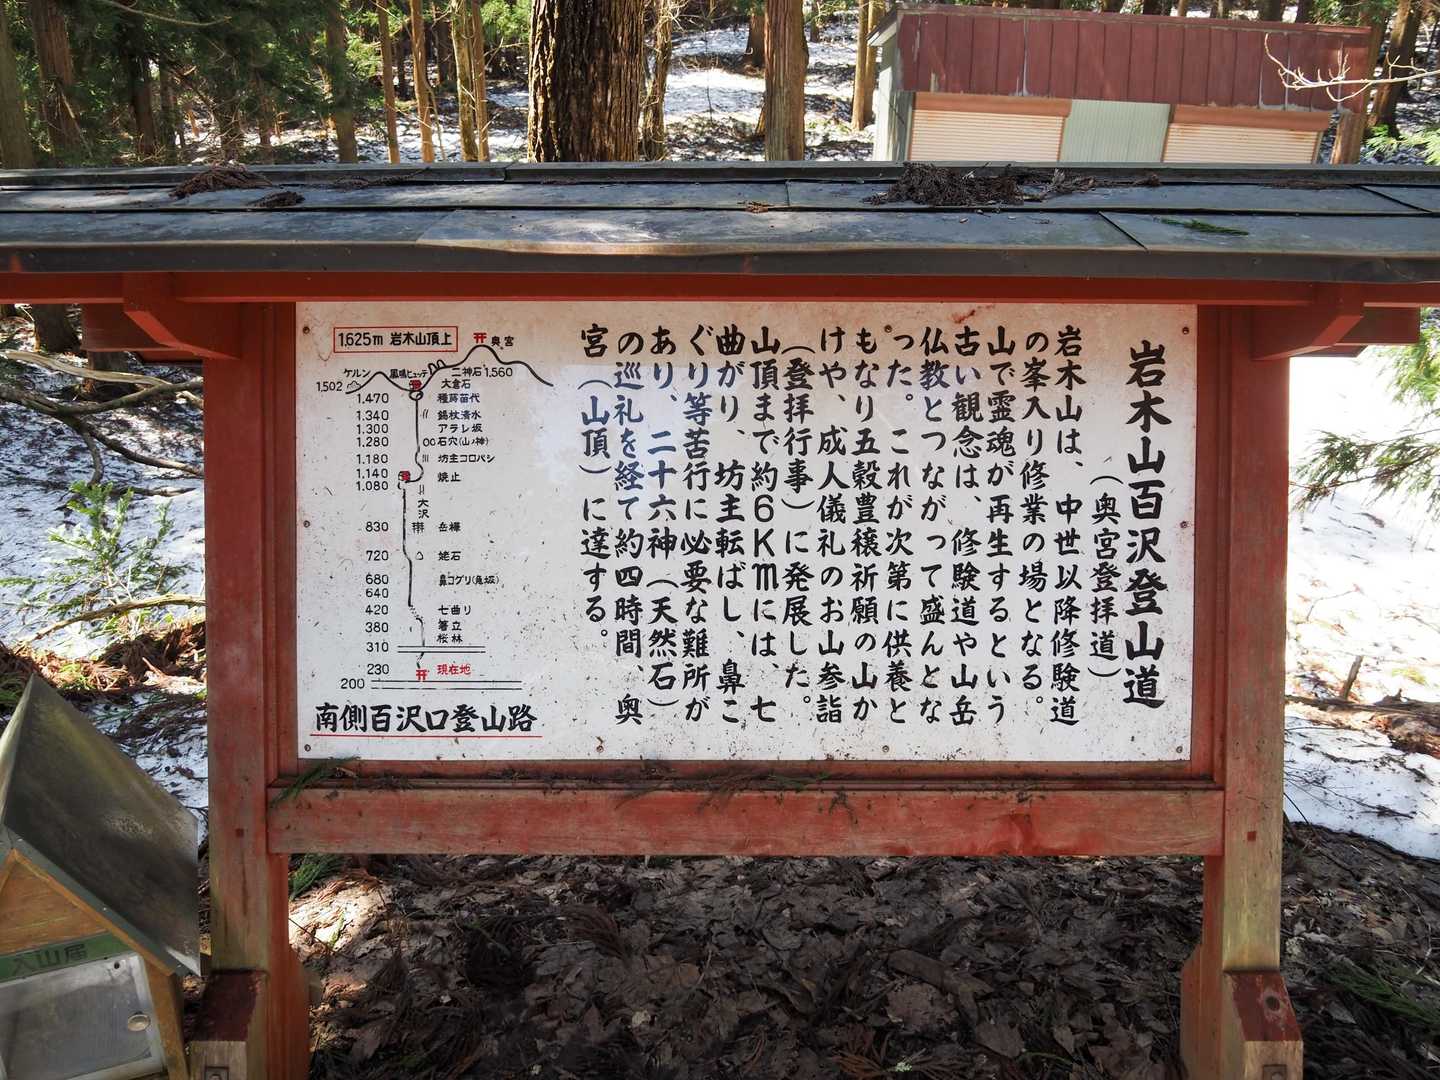 岩木山百沢登山道
（奥宮登拝道）
岩木山は、中世以降修験道
の峯入り修業の場となる。
山で霊魂が再生するという
古い観念は、修験道や山岳
仏教とつながって盛んとな
った。これが次第に供養と
もなり五穀豊穣祈願の山か
けや、成人儀礼のお山参詣
（登拝行事）に発展した。
山頂まで約6Kmには、七
曲がり、坊主転ばし、鼻こ
ぐり等苦行に必要な難所が
あり、二十六神（天然石）
の巡礼を経て約四時間、奥
宮（山頂）に達する。
1,625m 岩木山頂上
奥宮
ケルン
鳳鳴ヒュッテ
二神石 1,560
1,502
大倉石
1,470 種蒔苗代
1,340 錫杖清水
1,300 アラレ坂
1,280 石穴(山ノ神)
1,180 坊主コロバシ
1,140 焼止
1,080
大沢
830 岳樺
720 姥石
680 鼻コグリ(鬼坂)
640
420 七曲り
380 箸立
桜林
310
230 現在地
200
南側百沢口登山路
入山届